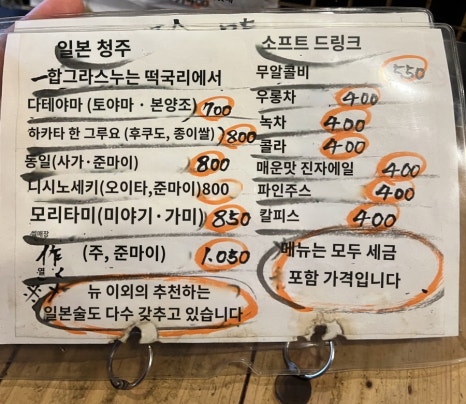 일본 청주
一합그라스누는 떡국리에서
다테야마 (토야마 · 본양조) 700
하카타 한 그루요 (후쿠도, 종이쌀) 800
동일(사가·준마이) 800
디시노세키(오이타,준마이)800
모리타미(미야기·가미) 850
作 (주, 준마이) 1.050
뉴 이외의 추천하는
일본술도 다수 갖추고 있습니다
소프트 드링크
무알콜비 550
우롱차 400
녹차 400
콜라 400
매운맛 진자에일 400
파인주스 400
칼피스 400
메뉴는 모두 세금
포함 가격입니다